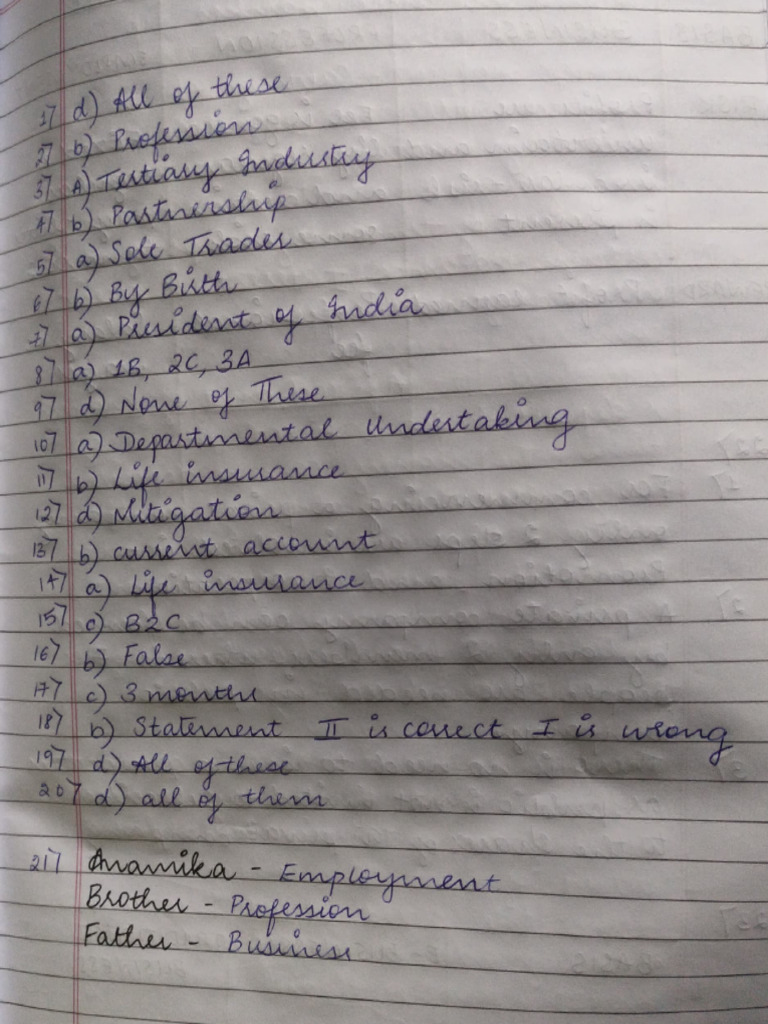 1) d) All of these
2) b) Profession
3) A) Tertiary Industry
4) b) Partnership
5) a) Sole Trader
6) b) By Birth
7) a) President of India
8) a) 1B, 2C, 3A
9) d) None of These
10) a) Departmental Undertaking
11) b) Life insurance
12) d) Mitigation
13) b) current account
14) a) Life insurance
15) c) B2C
16) b) False
17) c) 3 months
18) b) Statement II is correct I is wrong
19) d) All of these
20) d) all of them
21) Anamika - Employment
Brother - Profession
Father - Business